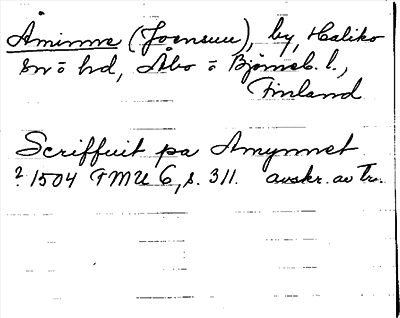 Åminne (Joensuu), by, Haliko
sn o hd, Åbo o Björneb. l.,
Finland
Scriffuit pa Amynnet
? 1504 FMU 6, s. 311. avskr. av Tr.